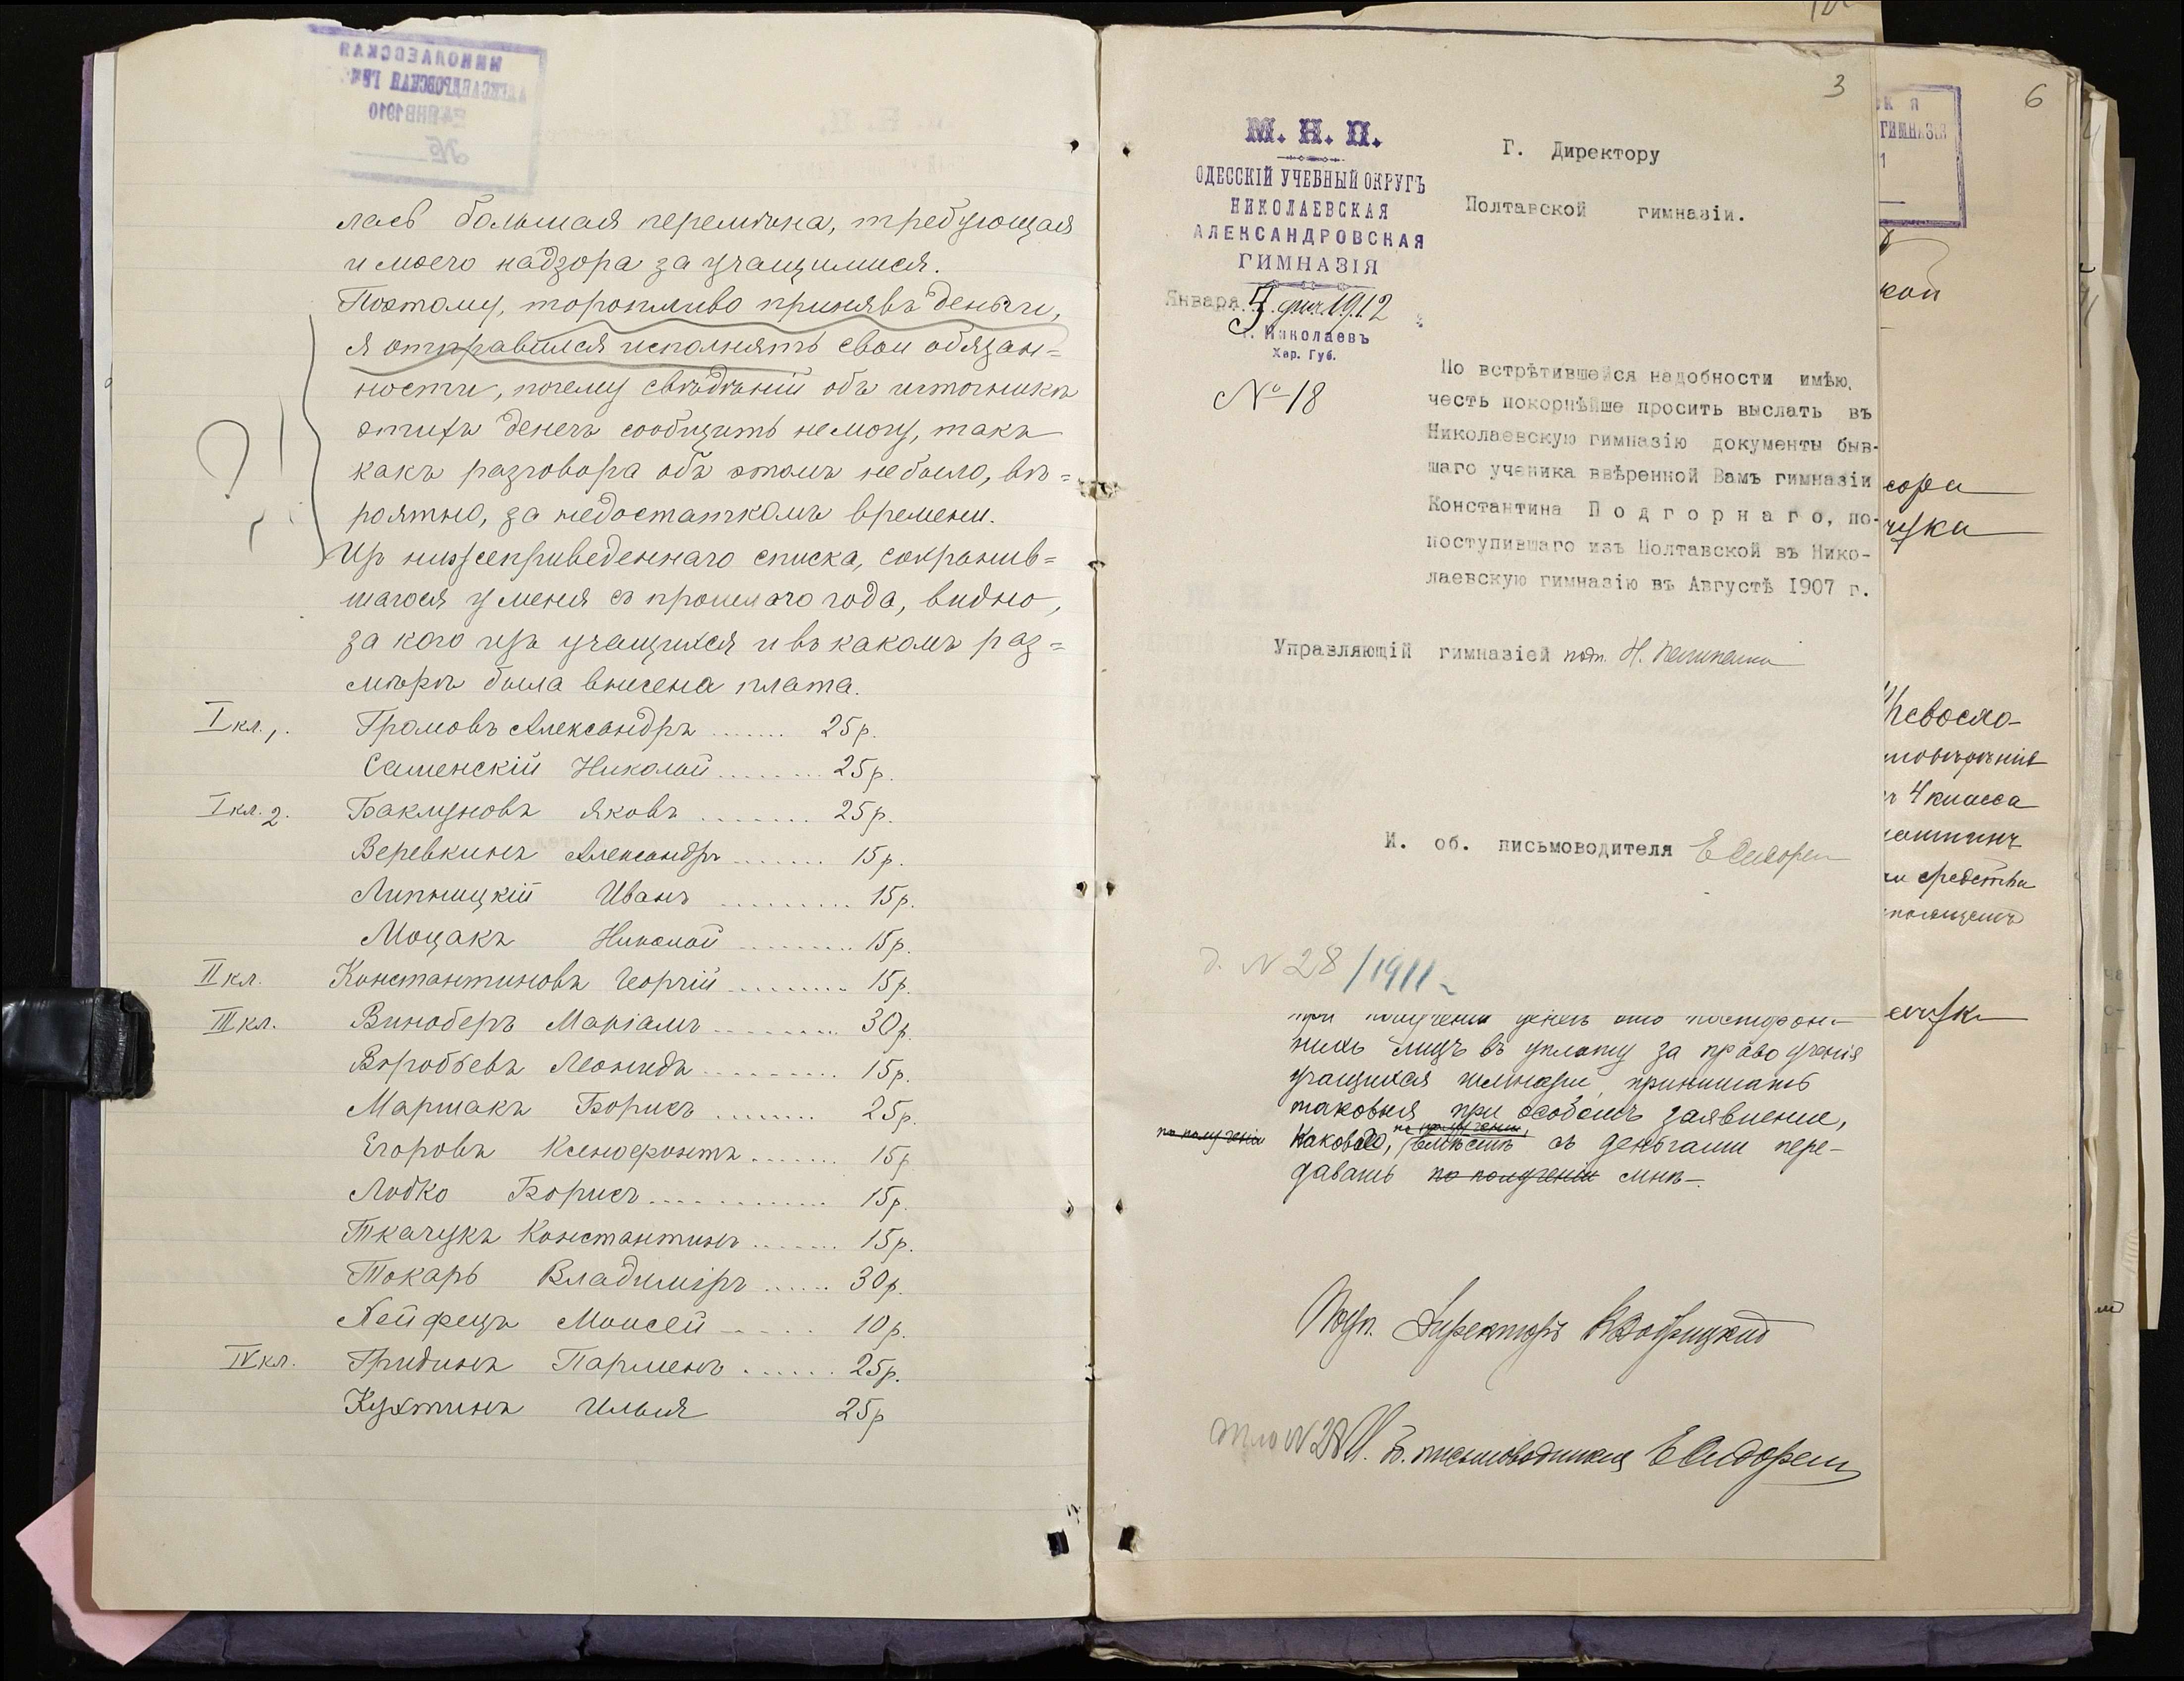 лась большая перемѣна, требующая
и моего надзора за учащимися.
Поэтому, торопливо принявъ деньги,
я отправился исполнять свои обязан=
ности, почему свѣдѣній объ источникѣ
этихъ денегъ сообщить не могу, такъ
какъ разговора объ этомъ не было, вѣ=
роятно, за недостаткомъ времени.
Изъ нижеприведеннаго списка, сохранив=
шагося у меня съ прошлаго года, видно,
за кого изъ учащихся и въ какомъ раз=
мѣрѣ была внесена плата.
I кл. 1. Громовъ Александръ ....... 25 р.
Саменскій Николай ........ 25 р.
I кл. 2. Баклуновъ Яковъ ........ 25 р.
Веревкинъ Александръ ....... 15 р.
Липницкій Иванъ ......... 15 р.
Моцакъ Николай ......... 15 р.
II кл. Константиновъ Георгій ........ 15 р.
III кл. Виноберъ Маріамъ ......... 30 р.
Воробьевъ Леонидъ ......... 15 р.
Маршакъ Борисъ ....... 25 р.
Егоровъ Ксенофонтъ ....... 15 р
Лодко Борисъ ............ 15 р.
Ткачукъ Константинъ ....... 15 р.
Токарь Владиміръ ...... 30 р.
Хейфецъ Моисей ..... 10 р.
IV кл. Гридинъ Парменъ ...... 25 р.
Кухтинъ Илья 25 р
3
М. Н. П.
ОДЕССКІЙ УЧЕБНЫЙ ОКРУГЪ
НИКОЛАЕВСКАЯ
АЛЕКСАНДРОВСКАЯ
ГИМНАЗІЯ
Января 5 дня 1912
г. Николаевъ
Хер. Губ.
№ 18
Г. Директору
Полтавской гимназіи.
По встрѣтившейся надобности имѣю
честь покорнѣйше просить выслать въ
Николаевскую гимназію документы быв-
шаго ученика ввѣренной Вамъ гимназіи
Константина Подгорнаго, по-
поступившаго изъ Полтавской въ Нико-
лаевскую гимназію въ Августѣ 1907 г.
Управляющій гимназіей подп. Н.
И. об. письмоводителя Е Сидорен
д. N 28/1911
при полученіи денегъ отъ посторон-
нихъ лицъ въ уплату за право ученія
учащихся гимназіи, принимать
таковыя при особомъ заявленіи,
по полученіи каковое, по полученіи, вмѣстѣ съ деньгами пере-
давать по полученіи мнѣ.
Подп. Директоръ
Дѣло N 28 И. об. письмоводителя Е Сидорен
6
ГИМНАЗІЯ
4 класса
средства